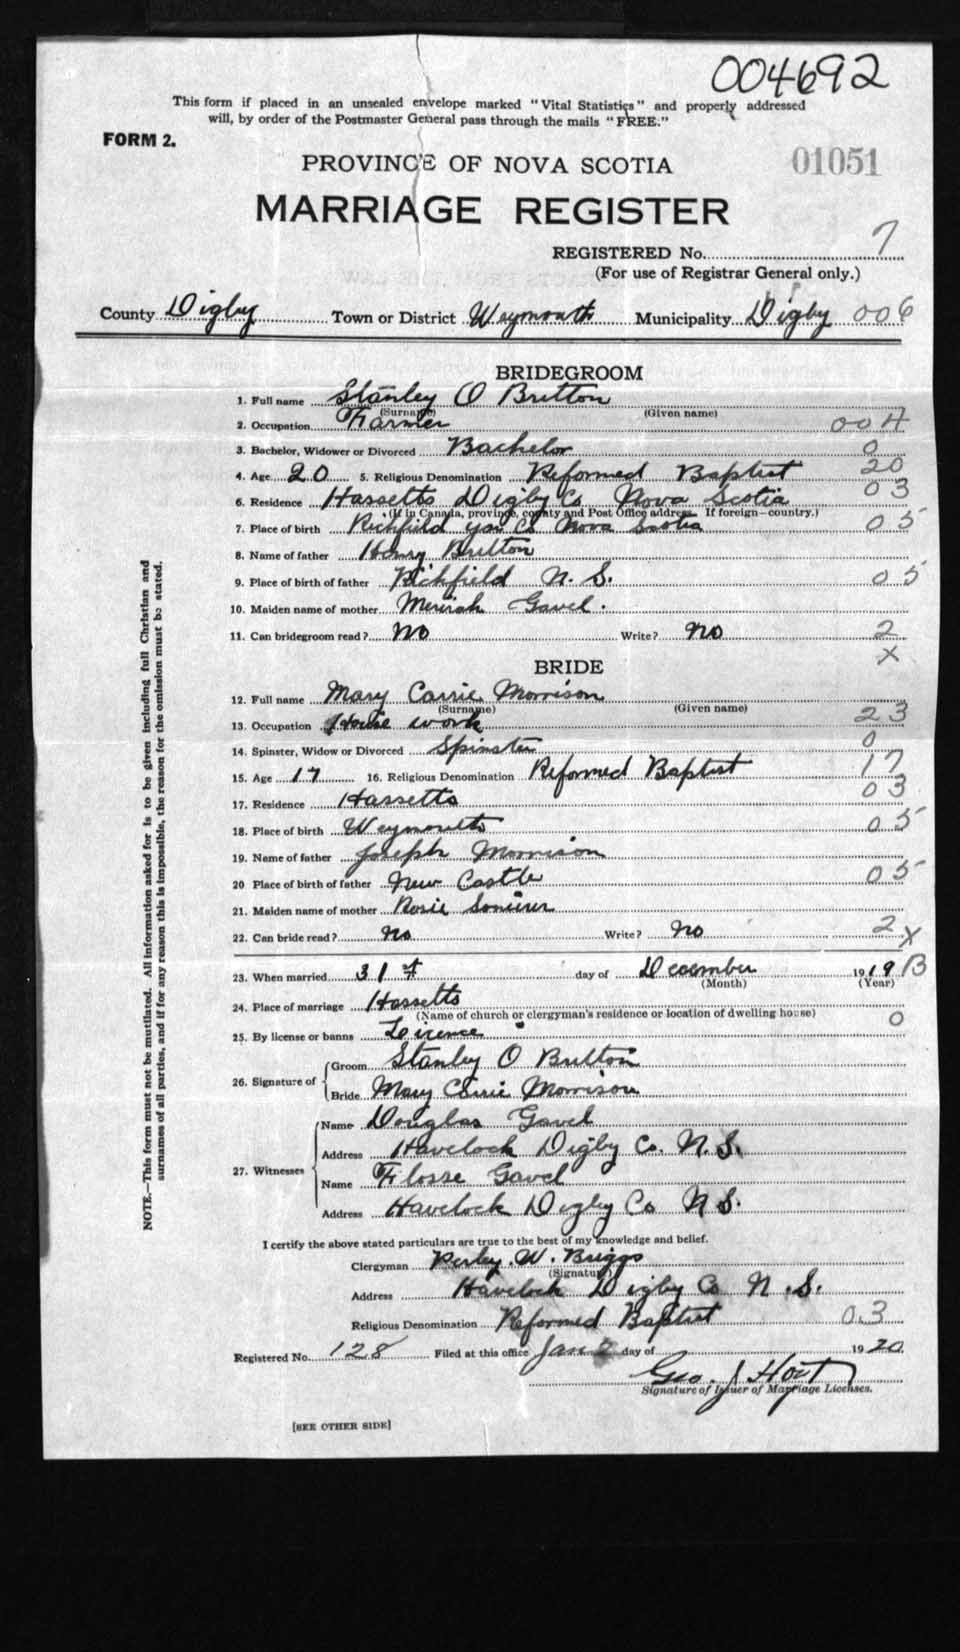 004692
This form if placed in an unsealed envelope marked "Vital Statistics" and properly addressed
will, by order of the Postmaster General pass through the mails "FREE."
FORM 2.
PROVINCE OF NOVA SCOTIA
01051
MARRIAGE REGISTER
REGISTERED No. 7
(For use of Registrar General only.)
County Digby Town or District Weymouth Municipality Digby 006
BRIDEGROOM
1. Full name Stanley O Britton
(Surname) (Given name)
2. Occupation Farmer 004
3. Bachelor, Widower or Divorced Bachelor 0
4. Age 20 5. Religious Denomination Reformed Baptist 20
6. Residence Hassetts Digby Co Nova Scotia 03
(If in Canada, province, county and Post Office address. If foreign—country.)
7. Place of birth Richfield Yar Co Nova Scotia 05
8. Name of father Henry Britton
9. Place of birth of father Richfield N. S. 05
10. Maiden name of mother Gavel.
11. Can bridegroom read? No Write? No 2
X
BRIDE
12. Full name Mary Carrie Morrison
(Surname) (Given name)
13. Occupation House work 23
14. Spinster, Widow or Divorced Spinster 0
15. Age 17 16. Religious Denomination Reformed Baptist 17
17. Residence Hassetts 03
18. Place of birth Weymouth 05
19. Name of father Joseph Morrison
20 Place of birth of father New Castle 05
21. Maiden name of mother Rosie
22. Can bride read? No Write? No 2 X
23. When married 31st day of December 1919 B
(Month) (Year)
24. Place of marriage Hassetts
(Name of church or clergyman's residence or location of dwelling house) 0
25. By license or banns Licence
26. Signature of
Groom Stanley O Britton
Bride Mary Carrie Morrison
27. Witnesses
Name Douglas Gavel
Address Havelock Digby Co. N.S.
Name Flosse Gavel
Address Havelock Digby Co N S.
I certify the above stated particulars are true to the best of my knowledge and belief.
Clergyman Perley. W. Briggs
(Signature)
Address Havelock Digby Co N.S.
Religious Denomination Reformed Baptist 03
Registered No. 128 Filed at this office Jan 2 day of 1920
Geo. J Hoyt
Signature of Issuer of Marriage Licenses.
[SEE OTHER SIDE]
NOTE.—This form must not be mutilated. All information asked for is to be given including full Christian and
surnames of all parties, and if for any reason this is impossible, the reason for the omission must be stated.